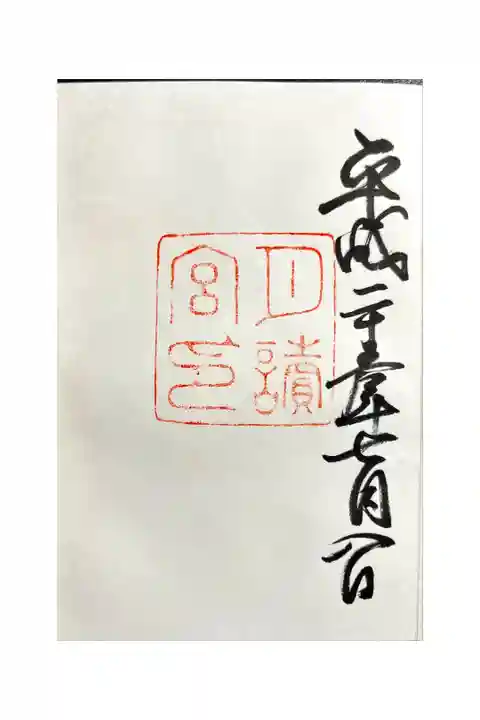 平成二十年七月八日
月讀
宮印